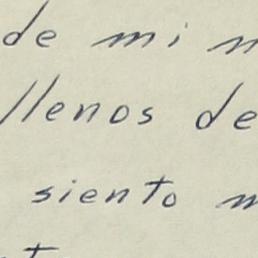 de mi
llenos de
siento